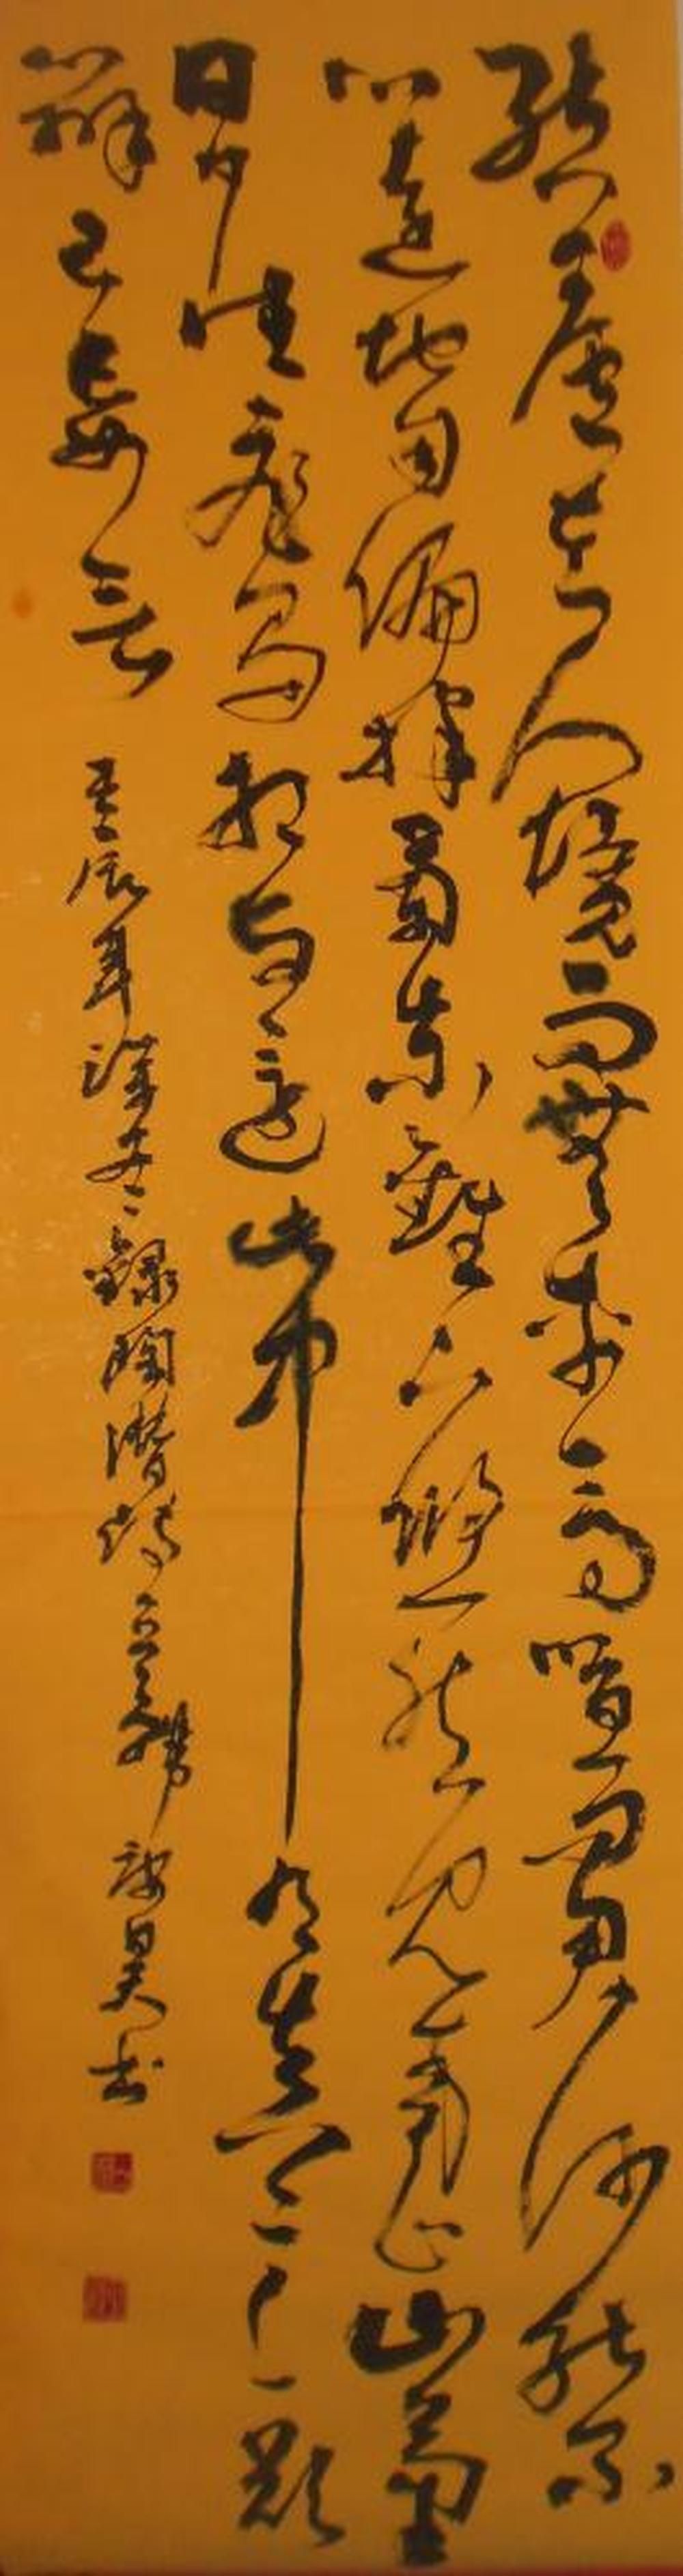 結廬在人境而無車馬喧問君何能尔
心遠地自偏採菊東籬下悠然見南山山氣
日夕佳飛鳥相與還此中有真意欲
辨已忘言 壬辰年 錄陶潛詩 昊書